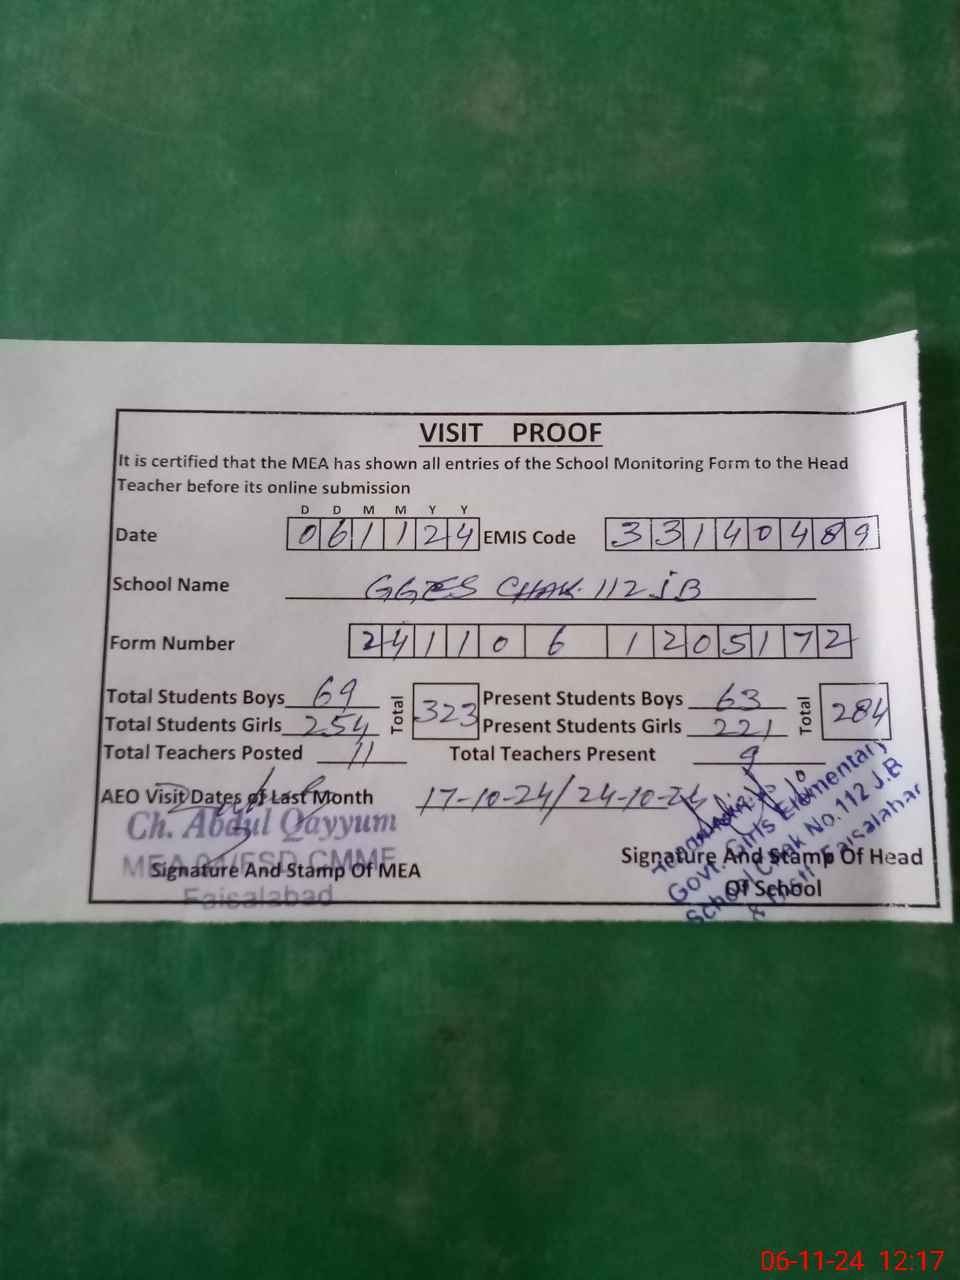 VISIT PROOF
It is certified that the MEA has shown all entries of the School Monitoring Form to the Head
Teacher before its online submission
D D M M Y Y
Date 061124 EMIS Code 33140489
School Name GGES CHAK 112 JB
Form Number 241106 1205172
Total Students Boys 69 Total 323 Present Students Boys 63 Total 284
Total Students Girls 254 Present Students Girls 221
Total Teachers Posted 11 Total Teachers Present 9
AEO Visit Dates of Last Month 17-10-24/24-10-24
Ch. Abdul Qayyum
MEA 04/FSD CMMF
Faisalabad
Signature And Stamp Of MEA
Govt. Girls Elementary
School Chak No. 112 J.B
Faisalabad
Signature And Stamp Of Head
Of School
06-11-24 12:17